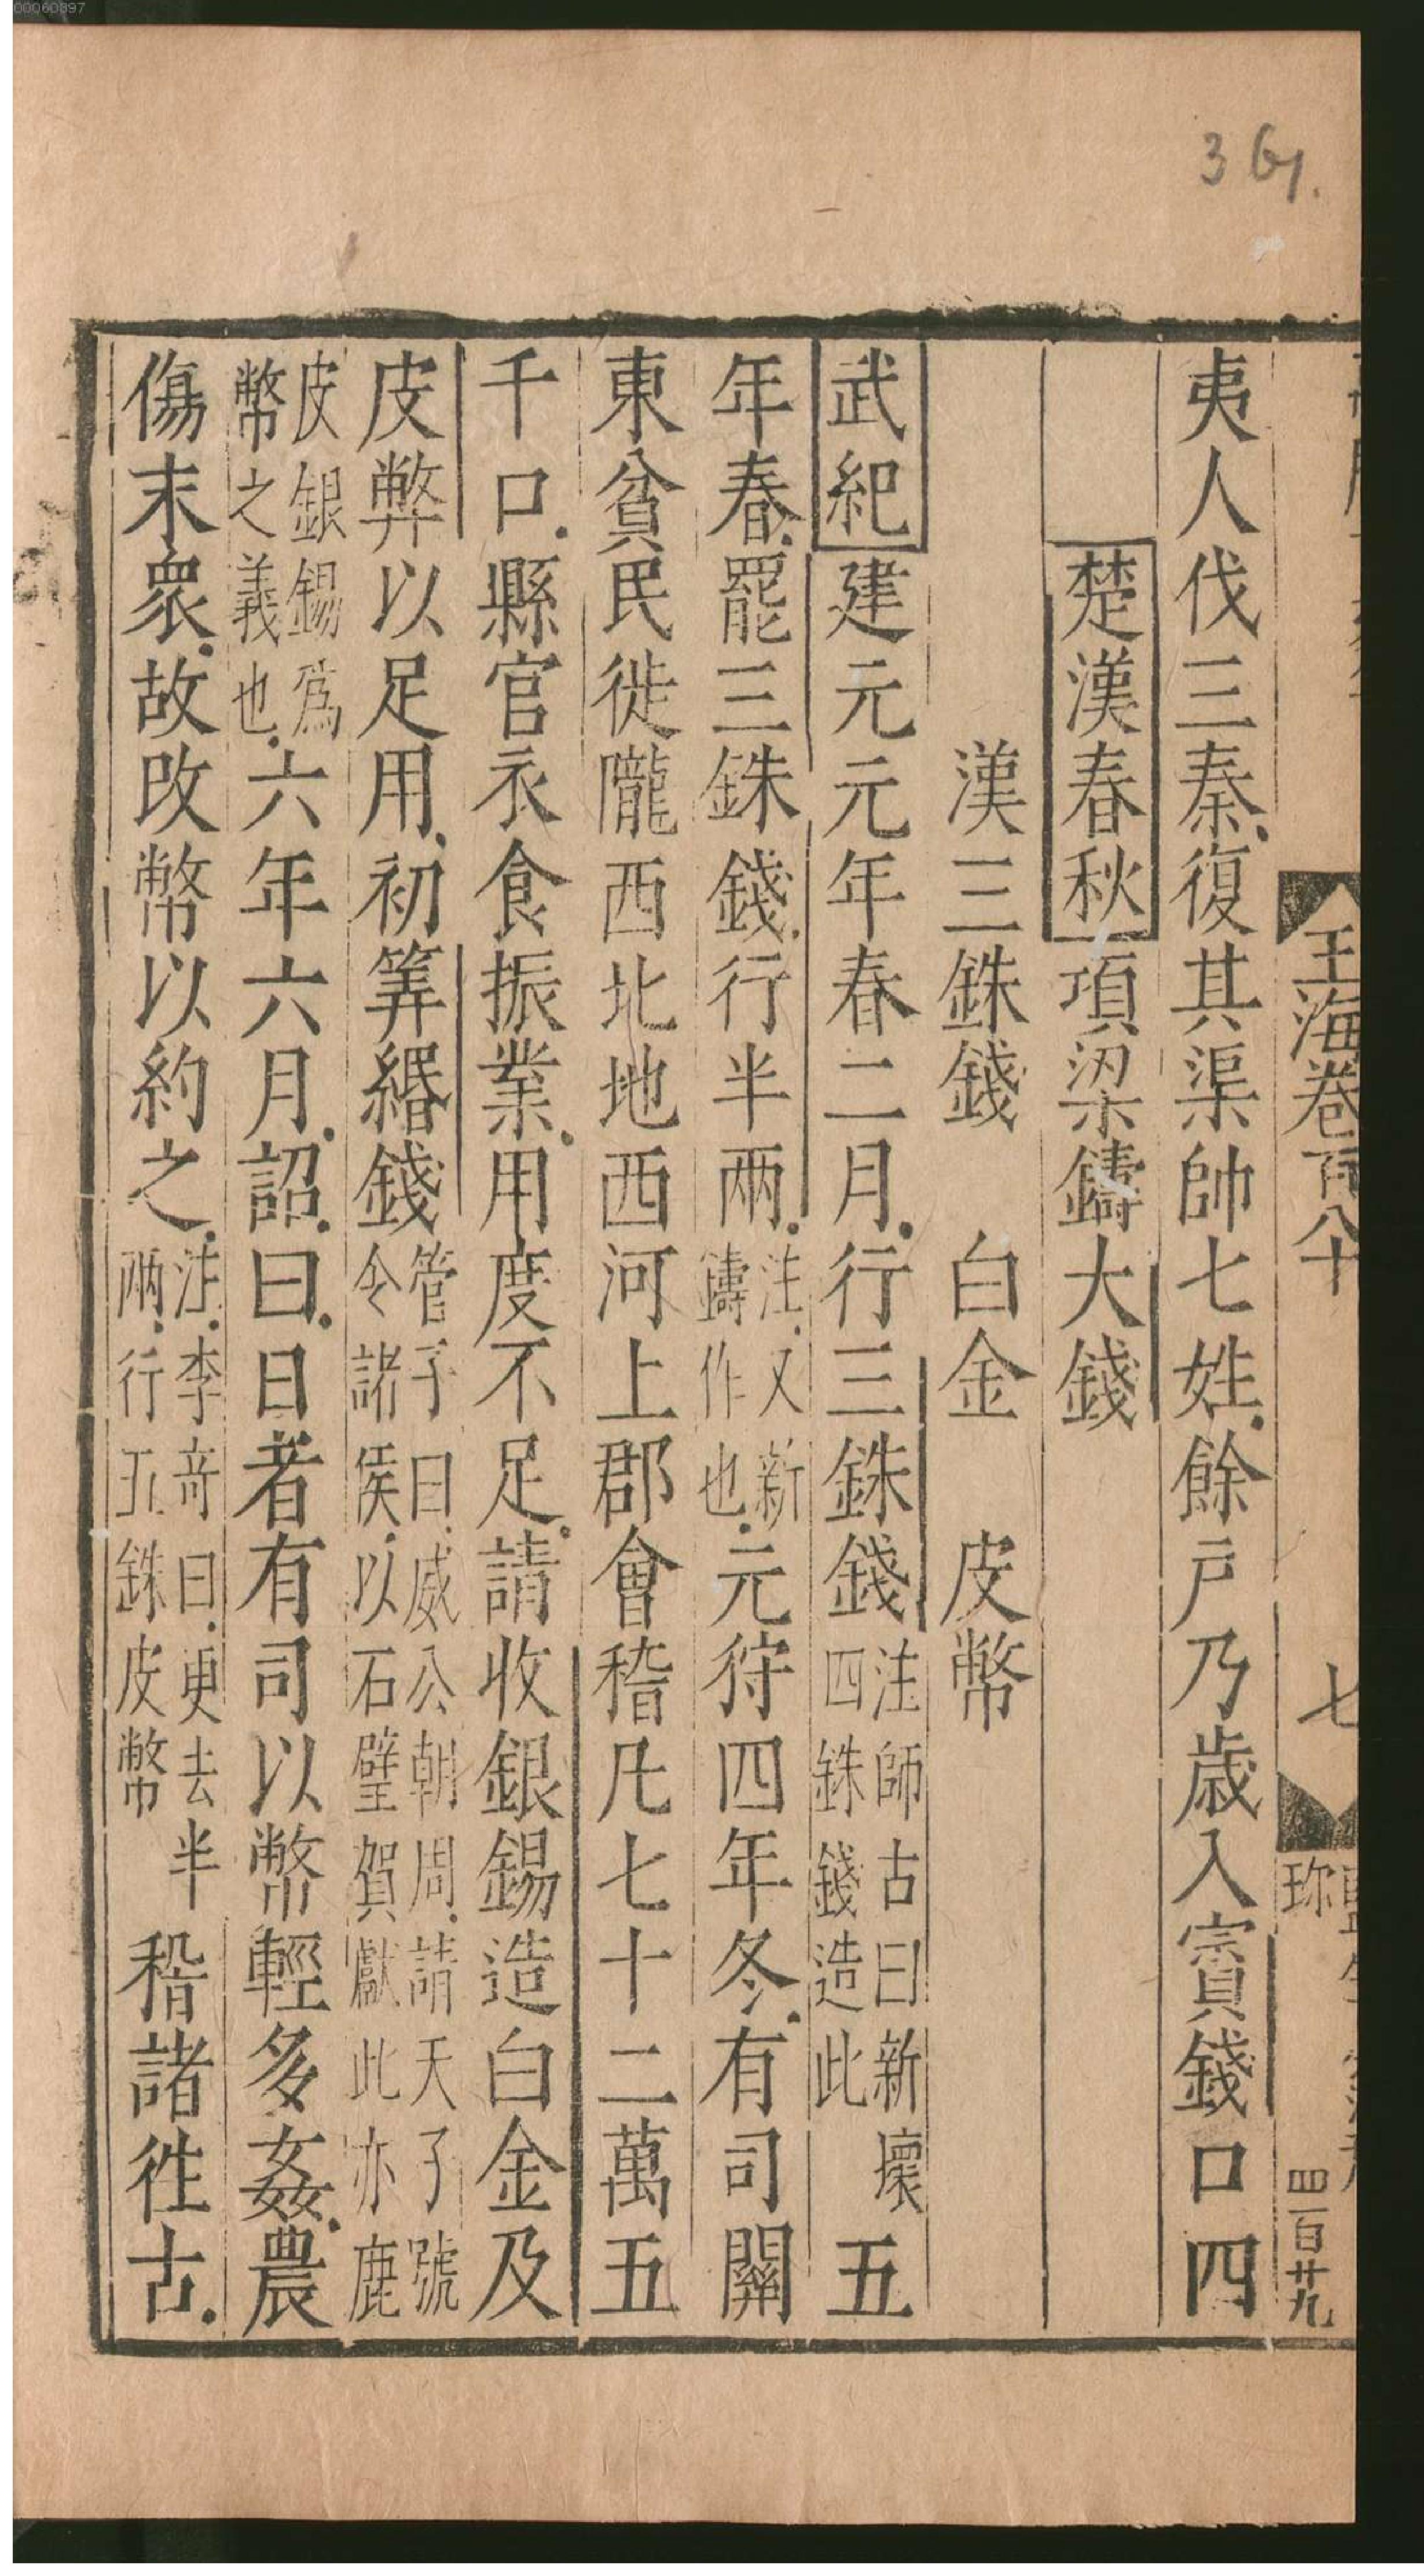 00060897
36
王海卷百八十
七
珎
四百廿九
夷人伐三秦復其渠帥七姓餘戸乃歳入賨錢口四
楚漢春秋項梁鑄大錢
漢三銖錢 白金 皮幣
武紀建元元年春二月行三銖錢注師古曰新壞四銖錢造此五
年春罷三銖錢行半兩注又新鑄作也元狩四年冬有司關
東貧民徙隴西北地西河上郡會稽凡七十二萬五
千口縣官衣食振業用度不足請收銀錫造白金及
皮弊以足用初筭緡錢管子曰威公朝周請天子號令諸侯以石璧賀獻此亦鹿
皮銀錫爲幣之義也六年六月詔曰日者有司以幣輕多姦農
傷末衆故改幣以約之注李竒曰更去半兩行五銖皮幣稽諸徃古